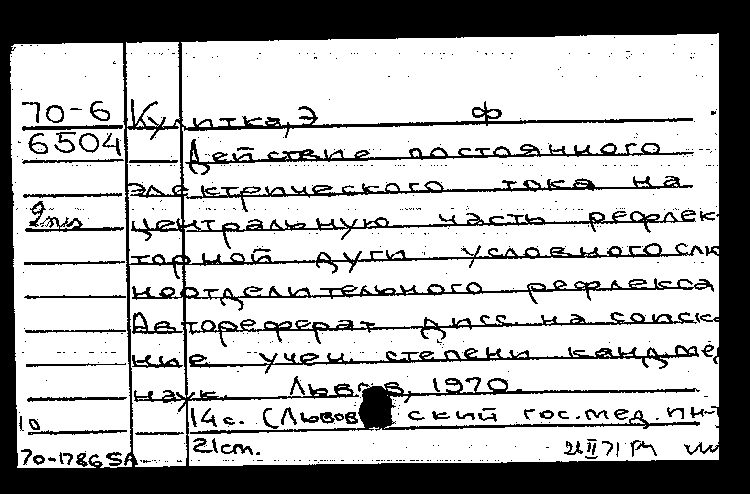 70-6 Кулитка, Э Ф
6504 Действие постоянного
электрического тока на
2 экз центральную часть рефлек-
торной дуги условного слю
ноотделительного рефлекса
Автореферат дисс. на соиск
ние учен. степени канд.мед
наук. Львов, 1970.
10 14с. (Львовский гос.мед.ин-т
70-17865А 21cm. 26 II 71